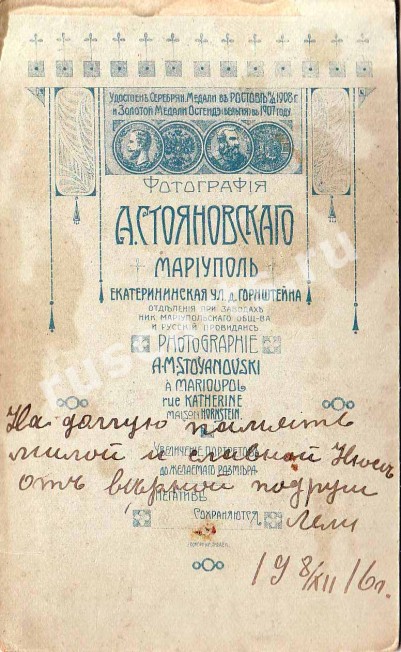 Удостоенъ Серебрян. Медали въ Ростовѣ н/Д 1908 г.
и Золотой Медали Остенде (Бельгiя) въ 1907 году.
Фотографія
А. Стояновскаго
Маріуполь
Екатерининская ул. д. Горнштейна
Отдѣленія при заводахъ
Ник. Маріупольскаго общ-ва
и Русскій Провидансъ
Photographie
A. M. Stoyanovski
à Marioupol
rue Katherine
maison Hornstein.
На долгую память
милой и славной Нюсѣ
Увеличеніе портретовъ
до желаемаго размѣра
отъ вѣрной подруги
Негативы
Сохраняются
Лели
19 8/XII 16 г.